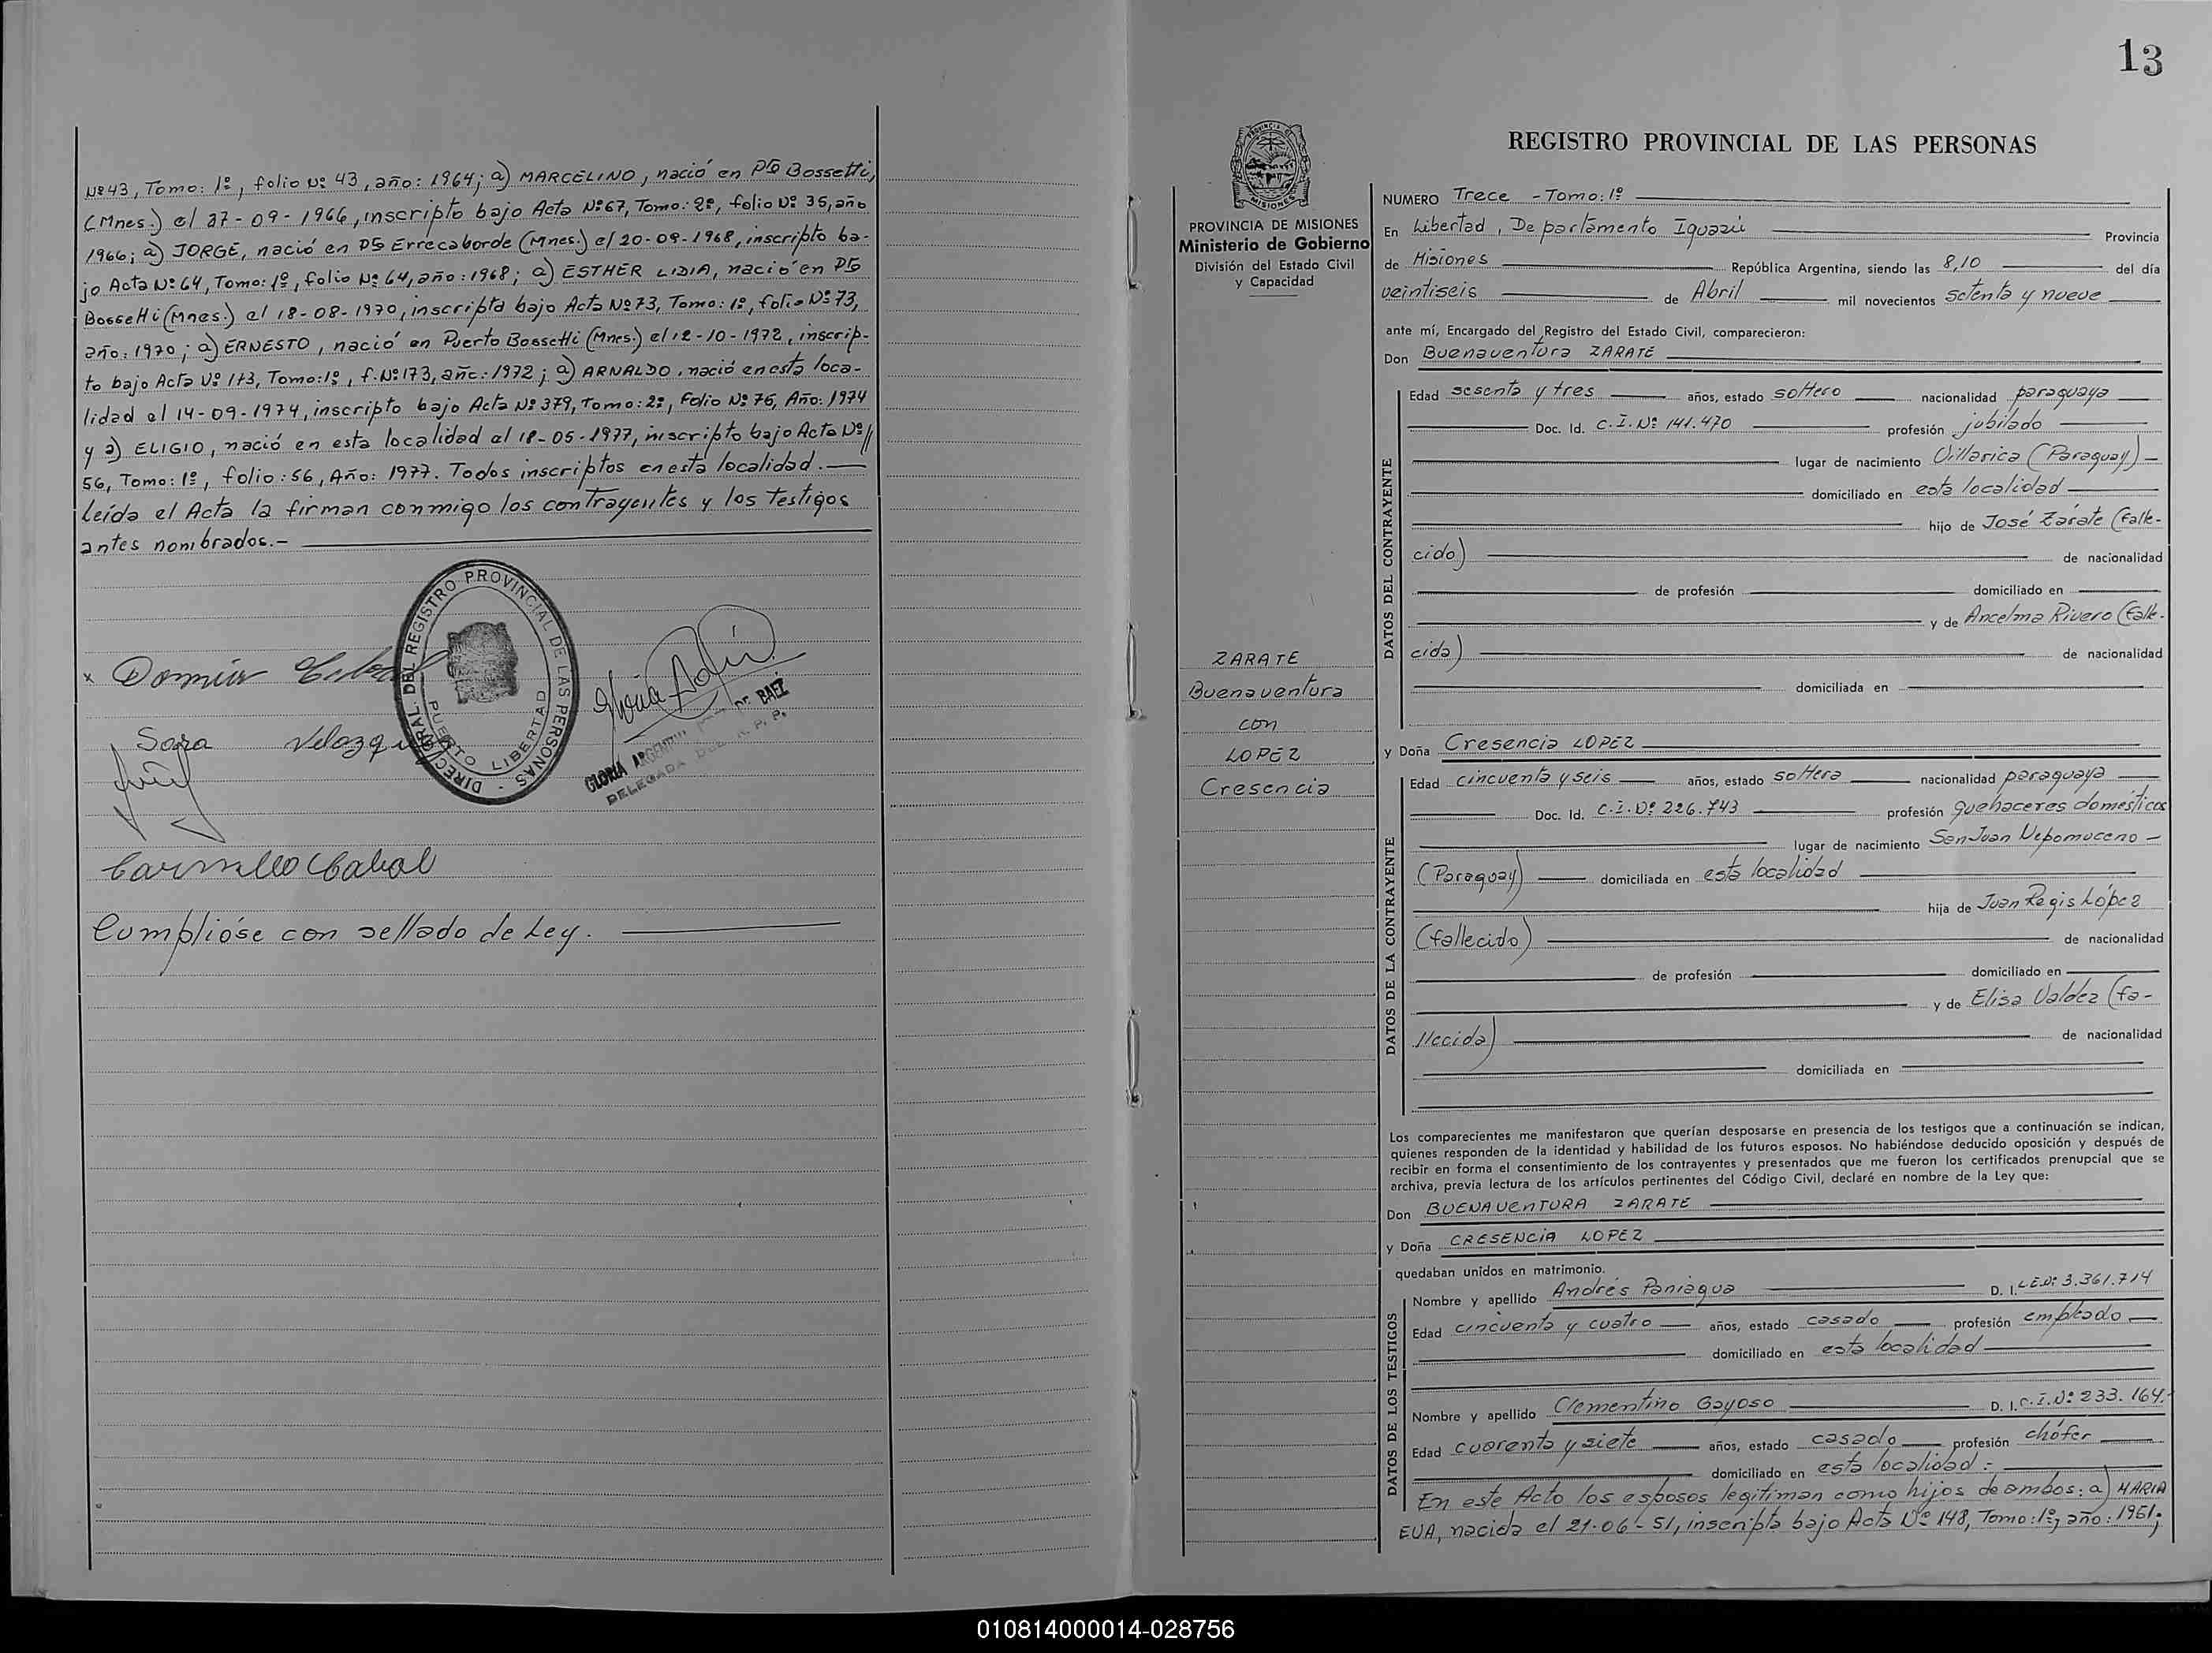 Nº 43, Tomo: 1º, folio Nº 43, año: 1964; a) MARCELINO, nació en Pto Bossetti,
(Mnes.) el 27-09-1966, inscripto bajo Acta Nº 67, Tomo: 2º, folio Nº 35, año
1966; a) JORGE, nació en Pto Errecaborde (Mnes.) el 20-09-1968, inscripto ba-
jo Acta Nº 64, Tomo: 1º, folio Nº 64, año: 1968; a) ESTHER LIDIA, nació en Pto
Bossetti (Mnes.) el 18-08-1970, inscripta bajo Acta Nº 73, Tomo: 1º, folio Nº 73,
año: 1970; a) ERNESTO, nació en Puerto Bossetti (Mnes.) el 12-10-1972, inscrip-
to bajo Acta Nº 173, Tomo: 1º, f. Nº 173, año: 1972; a) ARNALDO, nació en esta loca-
lidad el 14-09-1974, inscripto bajo Acta Nº 379, Tomo: 2º, Folio Nº 76, Año: 1974
y a) ELIGIO, nació en esta localidad el 18-05-1977, inscripto bajo Acta Nº//
56, Tomo: 1º, folio: 56, Año: 1977. Todos inscriptos en esta localidad.—
Leída el Acta la firman conmigo los contrayentes y los testigos
antes nombrados.-
DIREC. GRAL. DEL REGISTRO PROVINCIAL DE LAS PERSONAS
PUERTO LIBERTAD
x
Sara Velazqu
GLORIA ARGENTINA DE BAEZ
DELEGADA DEL R. P. P.
Carmelo Cabral
Cumplióse con sellado de Ley.
13
REGISTRO PROVINCIAL DE LAS PERSONAS
MISIONES
PROVINCIA DE MISIONES
Ministerio de Gobierno
División del Estado Civil
y Capacidad
ZARATE
Buenaventura
con
LOPEZ
Cresencia
NUMERO Trece - Tomo: 1º
En Libertad, Departamento Iguazú Provincia
de Misiones República Argentina, siendo las 8,10 del día
veintiseis de Abril mil novecientos setenta y nueve
ante mí, Encargado del Registro del Estado Civil, comparecieron:
Don Buenaventura ZARATE
DATOS DEL CONTRAYENTE
Edad sesenta y tres años, estado soltero nacionalidad paraguaya
Doc. Id. C.I. Nº 141.470 profesión jubilado
lugar de nacimiento Villarica (Paraguay)
domiciliado en esta localidad
hijo de José Zárate (falle-
cido) de nacionalidad
de profesión domiciliado en
y de Ancelma Rivero (falle-
cida) de nacionalidad
domiciliada en
y Doña Cresencia LOPEZ
DATOS DE LA CONTRAYENTE
Edad cincuenta y seis años, estado soltera nacionalidad paraguaya
Doc. Id. C.I. Nº 226.743 profesión quehaceres domésticos
lugar de nacimiento San Juan Nepomuceno
(Paraguay) domiciliada en esta localidad
hija de Juan Regis López
(fallecido) de nacionalidad
de profesión domiciliado en
y de Elisa Valdez (fa-
llecida) de nacionalidad
domiciliada en
Los comparecientes me manifestaron que querían desposarse en presencia de los testigos que a continuación se indican,
quienes responden de la identidad y habilidad de los futuros esposos. No habiéndose deducido oposición y después de
recibir en forma el consentimiento de los contrayentes y presentados que me fueron los certificados prenupcial que se
archiva, previa lectura de los artículos pertinentes del Código Civil, declaré en nombre de la Ley que:
Don BUENAVENTURA ZARATE
y Doña CRESENCIA LOPEZ
quedaban unidos en matrimonio.
DATOS DE LOS TESTIGOS
Nombre y apellido Andrés Paniagua D. I. L.E. Nº 3.361.714
Edad cincuenta y cuatro años, estado casado profesión empleado
domiciliado en esta localidad
Nombre y apellido Clementino Gayoso D. I. C.I. Nº 233.164.
Edad cuarenta y siete años, estado casado profesión chófer
domiciliado en esta localidad.-
En este Acto los esposos legitiman como hijos de ambos: a) MARIA
EVA, nacida el 21-06-51, inscripta bajo Acta Nº 148, Tomo: 1º, año: 1951;
010814000014-028756